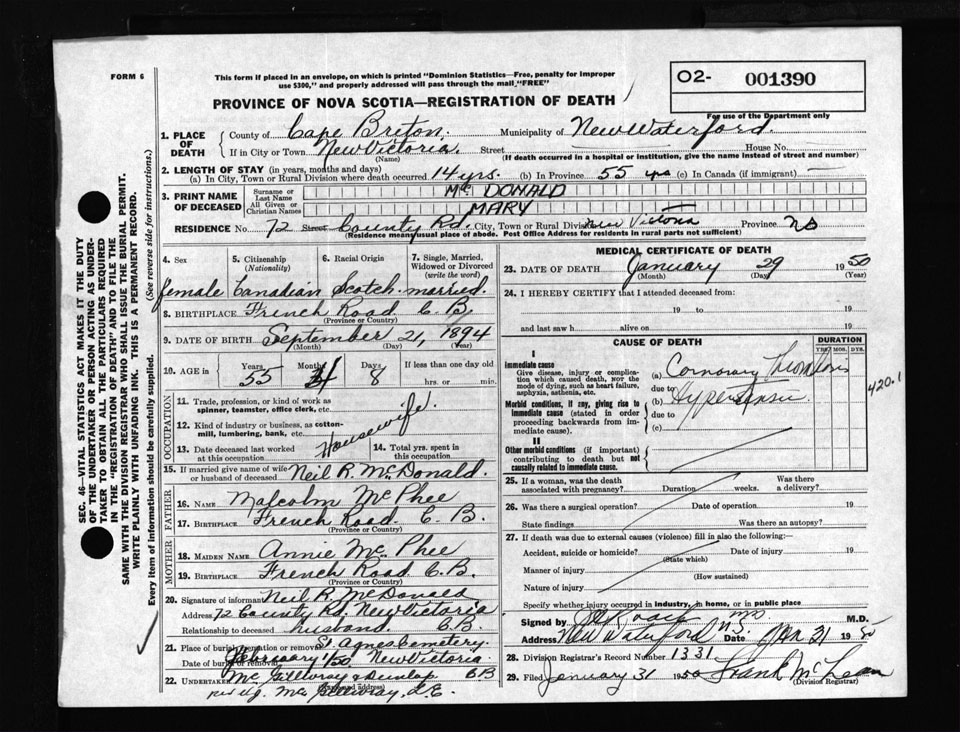 FORM 6
This form if placed in an envelope, on which is printed "Dominion Statistics—Free, penalty for improper
use $300," and properly addressed will pass through the mail "FREE"
O2- 001390
For use of the Department only
PROVINCE OF NOVA SCOTIA—REGISTRATION OF DEATH
1. PLACE OF DEATH
County of Cape Breton. Municipality of New Waterford.
If in City or Town New Victoria Street House No.
(Name) (If death occurred in a hospital or institution, give the name instead of street and number)
2. LENGTH OF STAY (in years, months and days)
(a) In City, Town or Rural Division where death occurred 14 yrs. (b) In Province 55 yrs (c) In Canada (if immigrant) —
3. PRINT NAME OF DECEASED
Surname or Last Name McDONALD
All Given or Christian Names MARY
RESIDENCE No. 72 Street County Rd. City, Town or Rural Division New Victoria Province NS
(Residence means usual place of abode. Post Office Address for residents in rural parts not sufficient)
4. Sex 5. Citizenship (Nationality) 6. Racial Origin 7. Single, Married, Widowed or Divorced (write the word)
female Canadian Scotch married.
8. BIRTHPLACE French Road C B
(Province or Country)
9. DATE OF BIRTH September 21, 1894
(Month) (Day) (Year)
10. AGE in Years 55 Months 4 Days 8 If less than one day old hrs. or min.
OCCUPATION
11. Trade, profession, or kind of work as spinner, teamster, office clerk, etc.
12. Kind of industry or business, as cotton-mill, lumbering, bank, etc.
Housewife.
13. Date deceased last worked at this occupation 14. Total yrs. spent in this occupation
15. If married give name of wife or husband of deceased Neil R. McDonald.
FATHER
16. NAME Malcolm McPhee
17. BIRTHPLACE French Road. C. B.
(Province or Country)
MOTHER
18. MAIDEN NAME Annie McPhee
19. BIRTHPLACE French Road C.B.
(Province or Country)
20. Signature of informant Neil R. McDonald
Address 72 County Rd. New Victoria
Relationship to deceased husband. C.B.
21. Place of burial or removal St Agnes Cemetery.
Date of burial or removal February 1/50 New Victoria
22. UNDERTAKER McGillivray & Dunlop CB
McGillivray, L.E.
MEDICAL CERTIFICATE OF DEATH
23. DATE OF DEATH January 29 1950
(Month) (Day) (Year)
24. I HEREBY CERTIFY that I attended deceased from:
19 to 19
and last saw h alive on 19
CAUSE OF DEATH
DURATION
YRS. MOS. DYS.
I
Immediate cause
Give disease, injury or complication which caused death, NOT the mode of dying, such as heart failure, asphyxia, asthenia, etc.
(a) Cornorary Thrombosis
due to
(b) Hypertension
420.1
Morbid conditions, if any, giving rise to immediate cause (stated in order proceeding backwards from immediate cause).
due to
(c)
II
Other morbid conditions (if important) contributing to death but not causally related to immediate cause.
25. If a woman, was the death associated with pregnancy? Duration weeks. Was there a delivery?
26. Was there a surgical operation? Date of operation 19
State findings Was there an autopsy?
27. If death was due to external causes (violence) fill in also the following:—
Accident, suicide or homicide? Date of injury 19
(State which)
Manner of injury
(How sustained)
Nature of injury
Specify whether injury occurred in industry, in home, or in public place
Signed by M.D.
Address New Waterford N.S. Date Jan 31 1950
28. Division Registrar's Record Number 1331
29. Filed January 31 1950 Frank McLean
(Division Registrar)
SEC. 46—VITAL STATISTICS ACT MAKES IT THE DUTY
OF THE UNDERTAKER OR PERSON ACTING AS UNDERTAKER
TO OBTAIN ALL THE PARTICULARS REQUIRED
IN THE "REGISTRATION OF DEATH" AND TO FILE THE
SAME WITH THE DIVISION REGISTRAR WHO SHALL ISSUE THE BURIAL PERMIT.
WRITE PLAINLY WITH UNFADING INK. THIS IS A PERMANENT RECORD.
Every item of information should be carefully supplied. (See reverse side for instructions.)